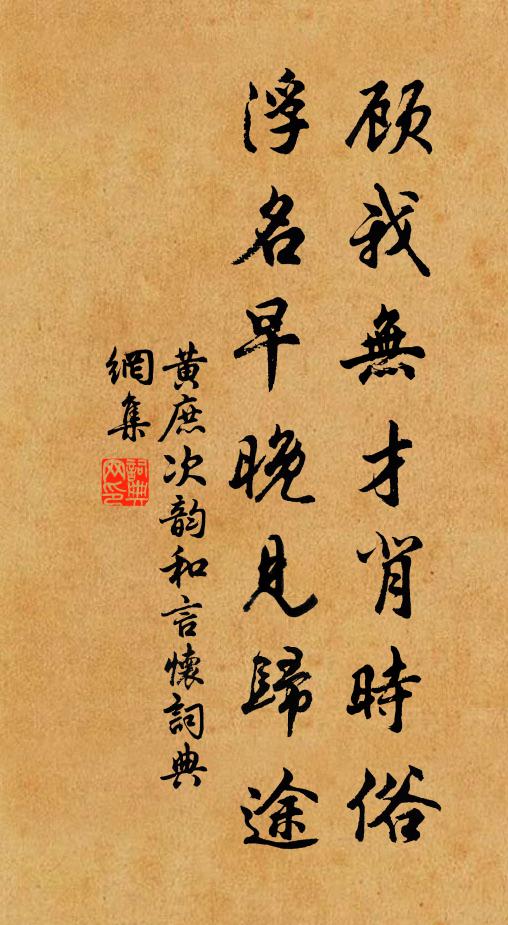 顾我無才背時俗
浮名早晚見歸途
黄庶次韵和言懷詞典
網集
詞典
网印